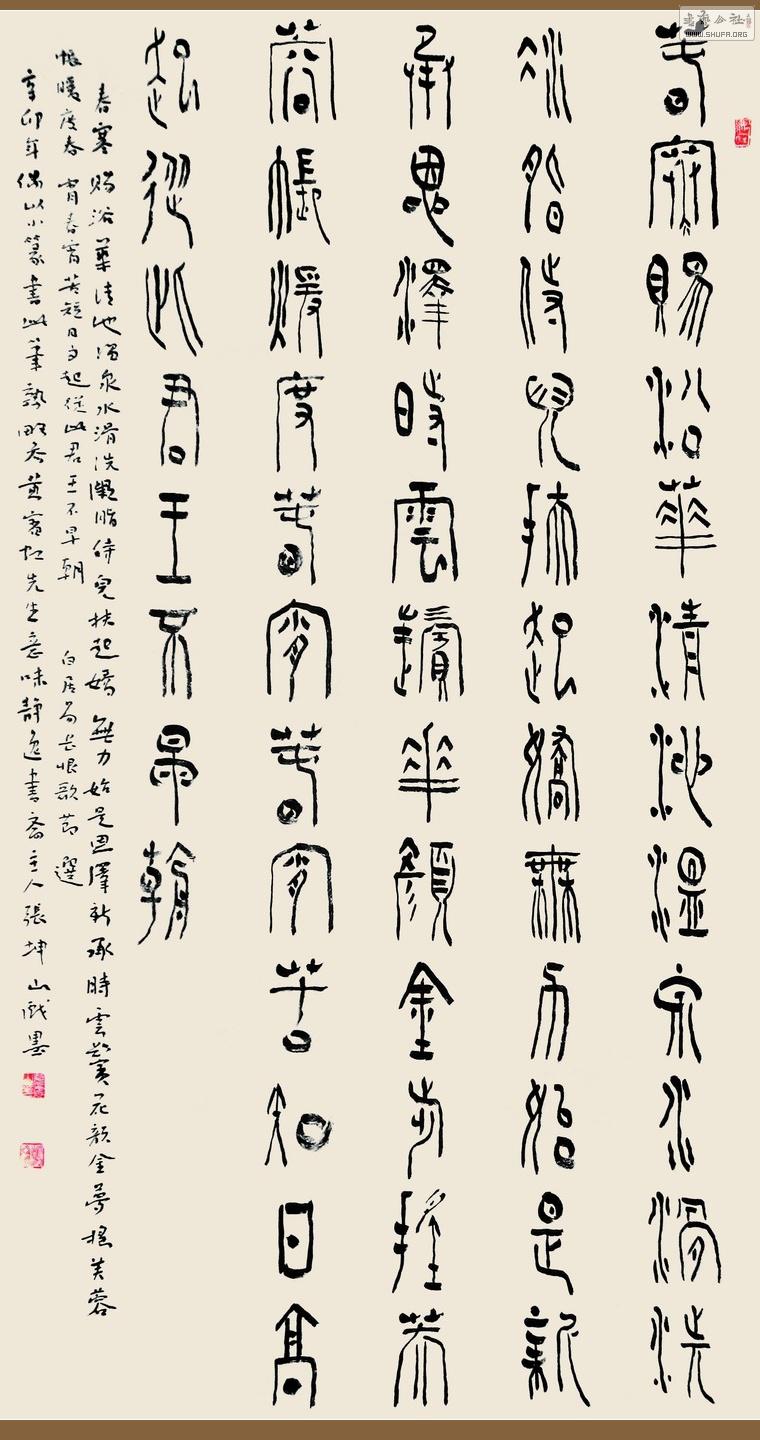 春寒賜浴華清池溫泉水滑洗
凝脂侍兒扶起嬌無力始是新
承恩澤時雲鬢華顏金步搖芙
蓉帳煖度春宵春宵苦短日高
起從此君王不早朝
春寒賜浴華清池溫泉水滑洗凝脂侍兒扶起嬌無力始是恩澤新承時雲鬢花顏金步搖芙蓉
帳暖度春宵春宵苦短日高起從此君王不早朝 白居易長恨歌節選
辛卯年偶以小篆書此筆勢略參黃賓虹先生意味靜逸書齋主人張坤山戲墨
WWW.SHUFA.ORG